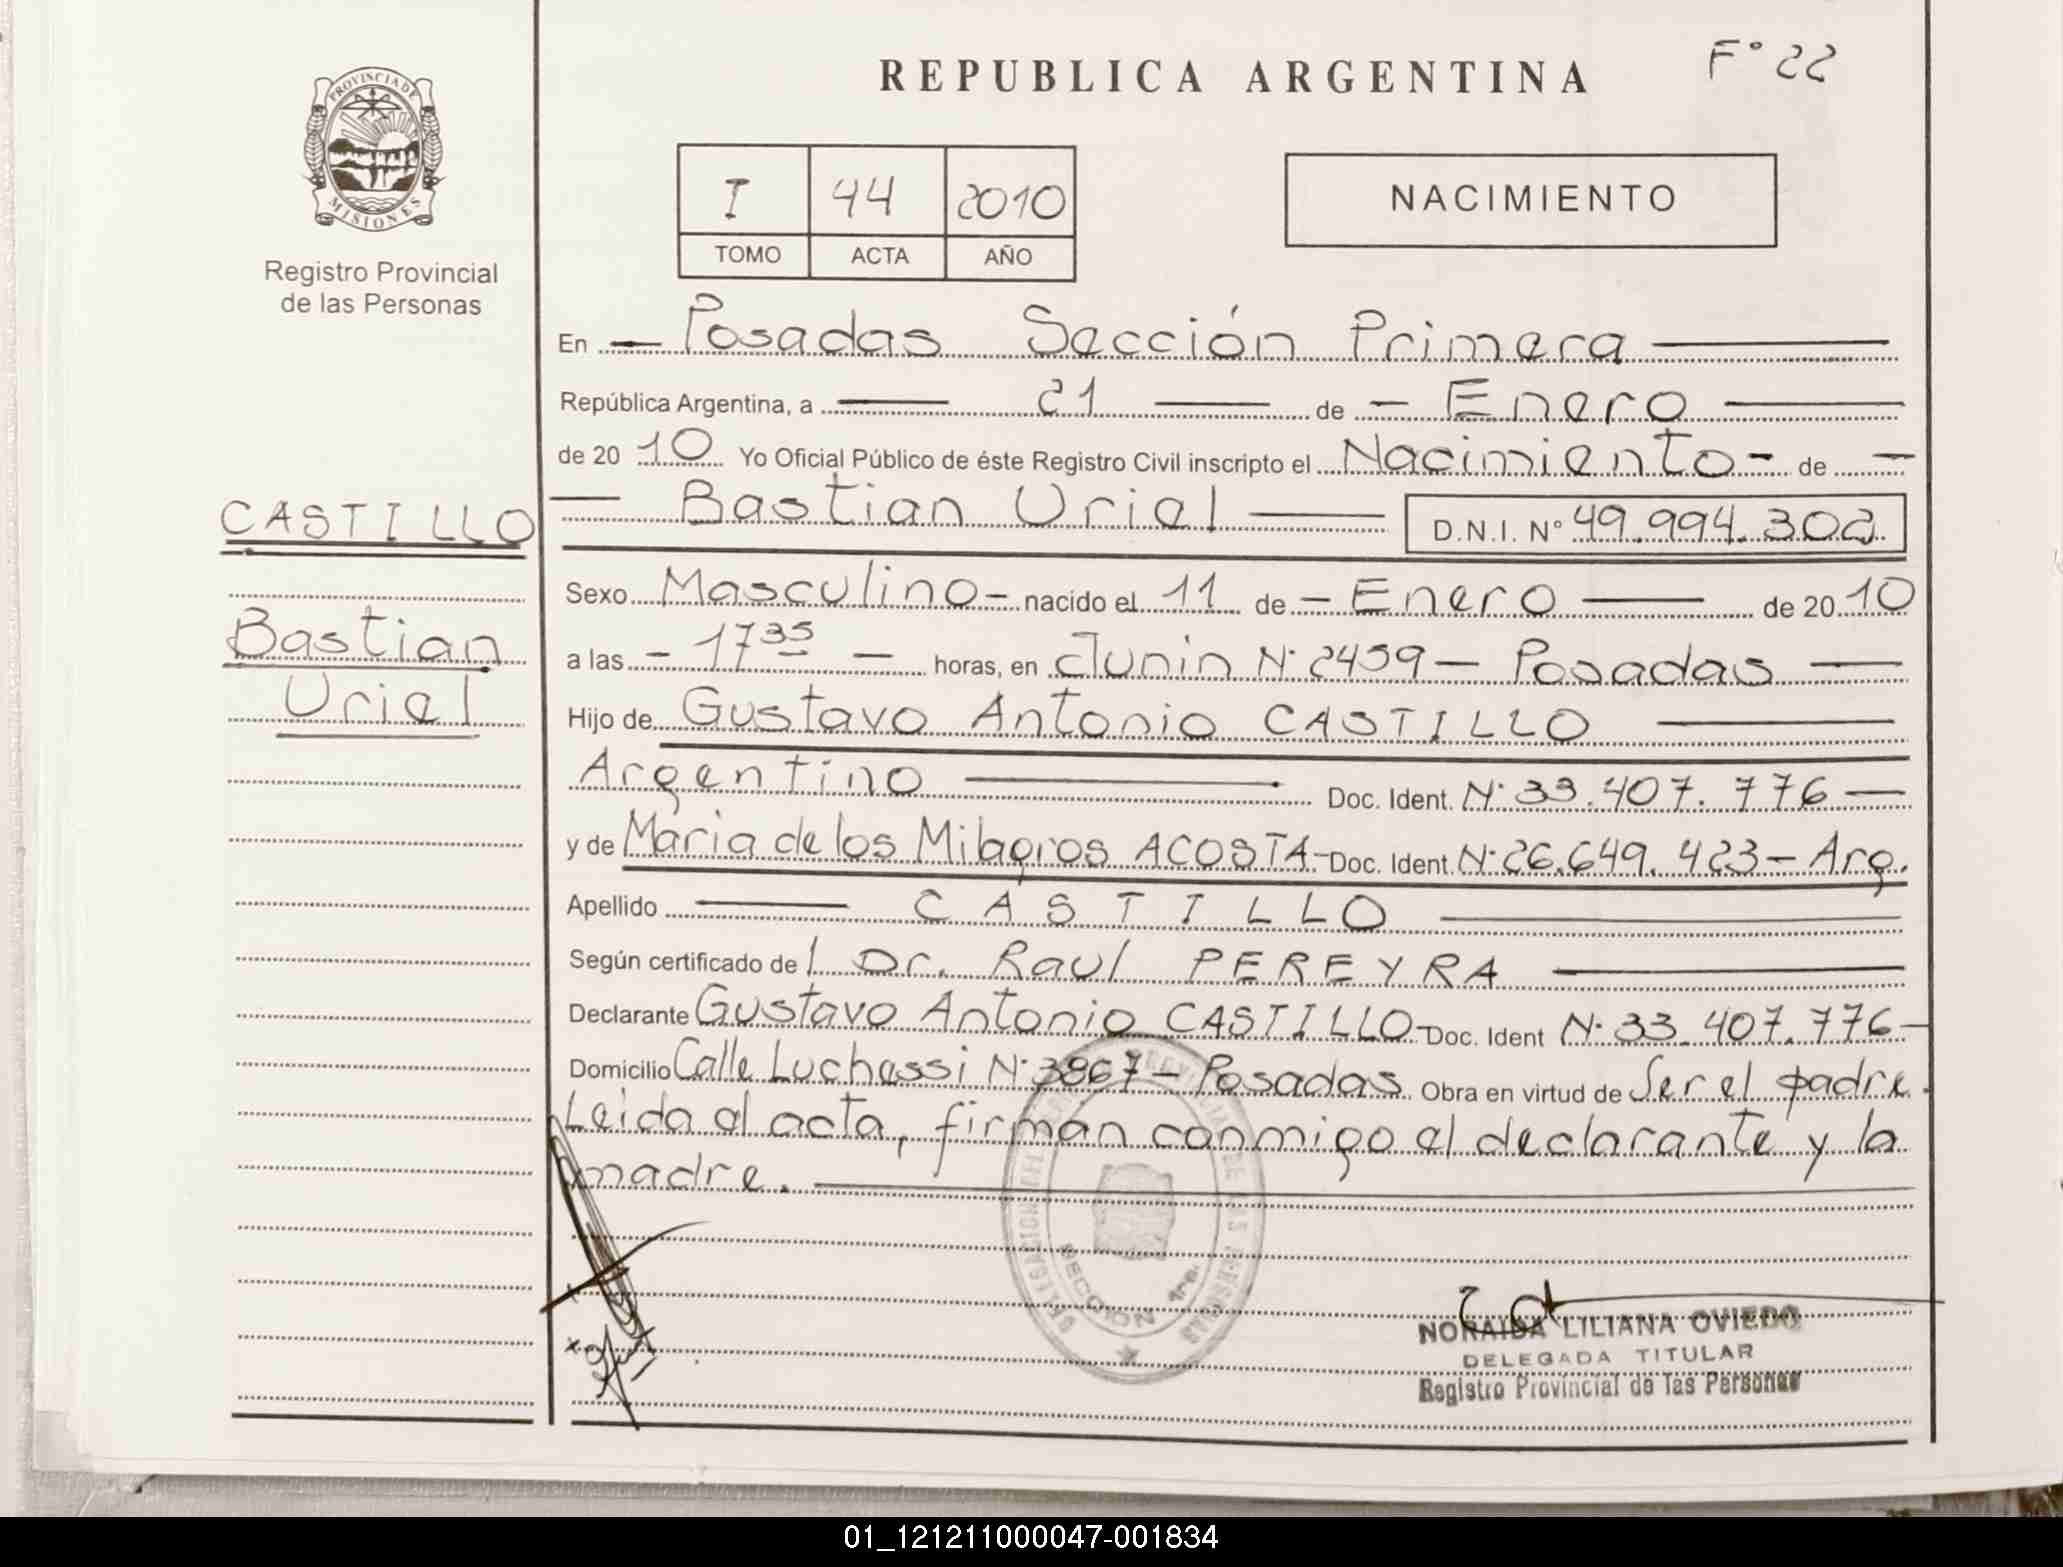 REPUBLICA ARGENTINA
F° 22
PROVINCIA DE
MISIONES
Registro Provincial
de las Personas
I 44 2010
TOMO ACTA AÑO
NACIMIENTO
En Posadas Sección Primera
República Argentina, a 21 de - Enero
de 20 10 Yo Oficial Público de éste Registro Civil inscripto el Nacimiento - de -
Bastian Uriel D.N.I. N° 49.994.302
CASTILLO
Bastian
Uriel
Sexo Masculino - nacido el 11 de - Enero de 20 10
a las - 17 35 - horas, en Junin N° 2459 - Posadas
Hijo de Gustavo Antonio CASTILLO
Argentino Doc. Ident. N° 33.407.776 -
y de Maria de los Milagros ACOSTA - Doc. Ident. N° 26.649.423 - Arg.
Apellido CASTILLO
Según certificado de l Dr. Raul PEREYRA
Declarante Gustavo Antonio CASTILLO - Doc. Ident N° 33.407.776 -
Domicilio Calle Luchessi N° 3867 - Posadas Obra en virtud de Ser el padre.
Leida el acta, firman conmigo el declarante y la
madre.
SECCION 1ra.
NORAIDA LILIANA OVIEDO
DELEGADA TITULAR
Registro Provincial de las Personas
01_121211000047-001834